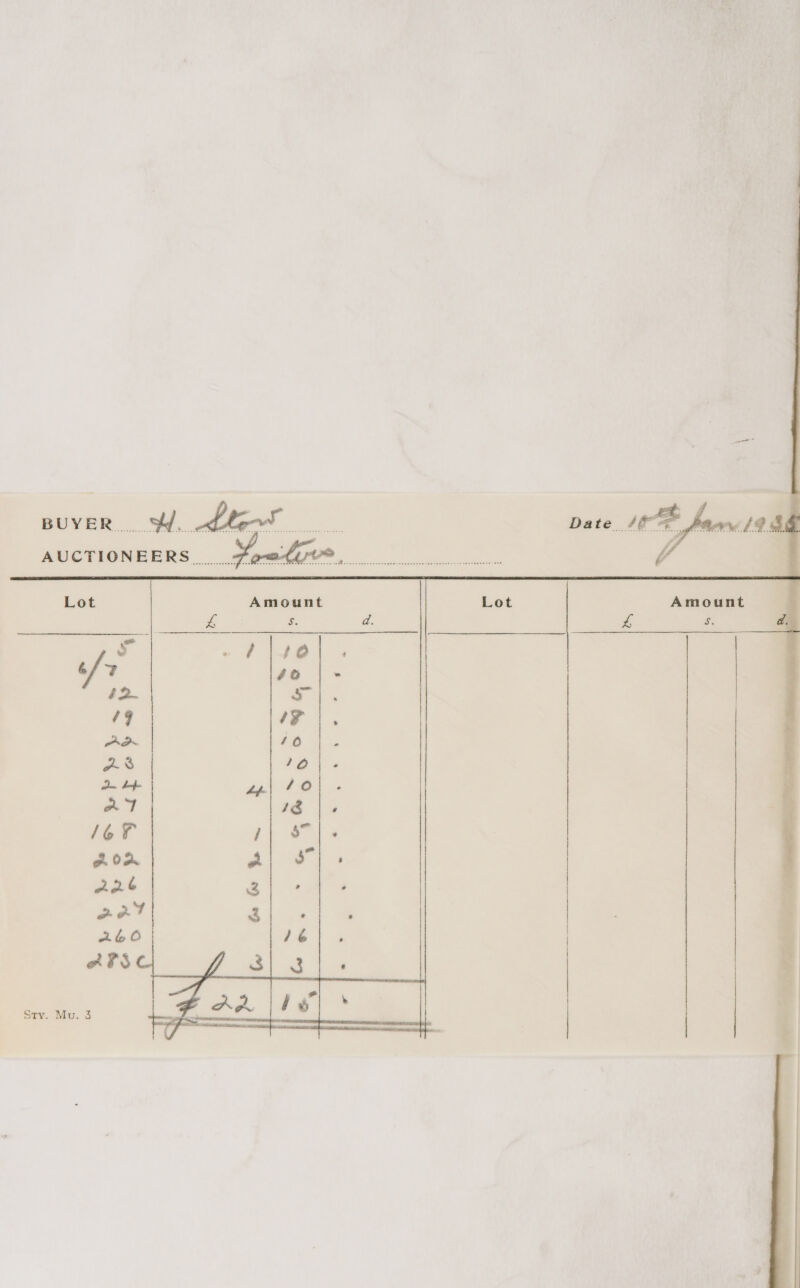 BUYER H.
Date 18th Jany
AUCTIONEERS
Lot Amount Lot Amount
£ s. d. £ s. d.
5 1 10 .
6/7 10 -
12 5 .
19 18 .
22 10 -
23 10 -
24 4 10 -
27 13 .
168 1 5 .
202 2 5 .
226 3 . .
227 3 . .
260 16 .
283C 3 3 .
£ 22 15 .
STY. MU. 3